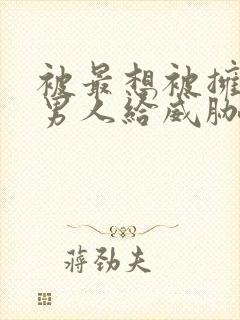 被最想被擁
男人給威脅
蔣勁夫